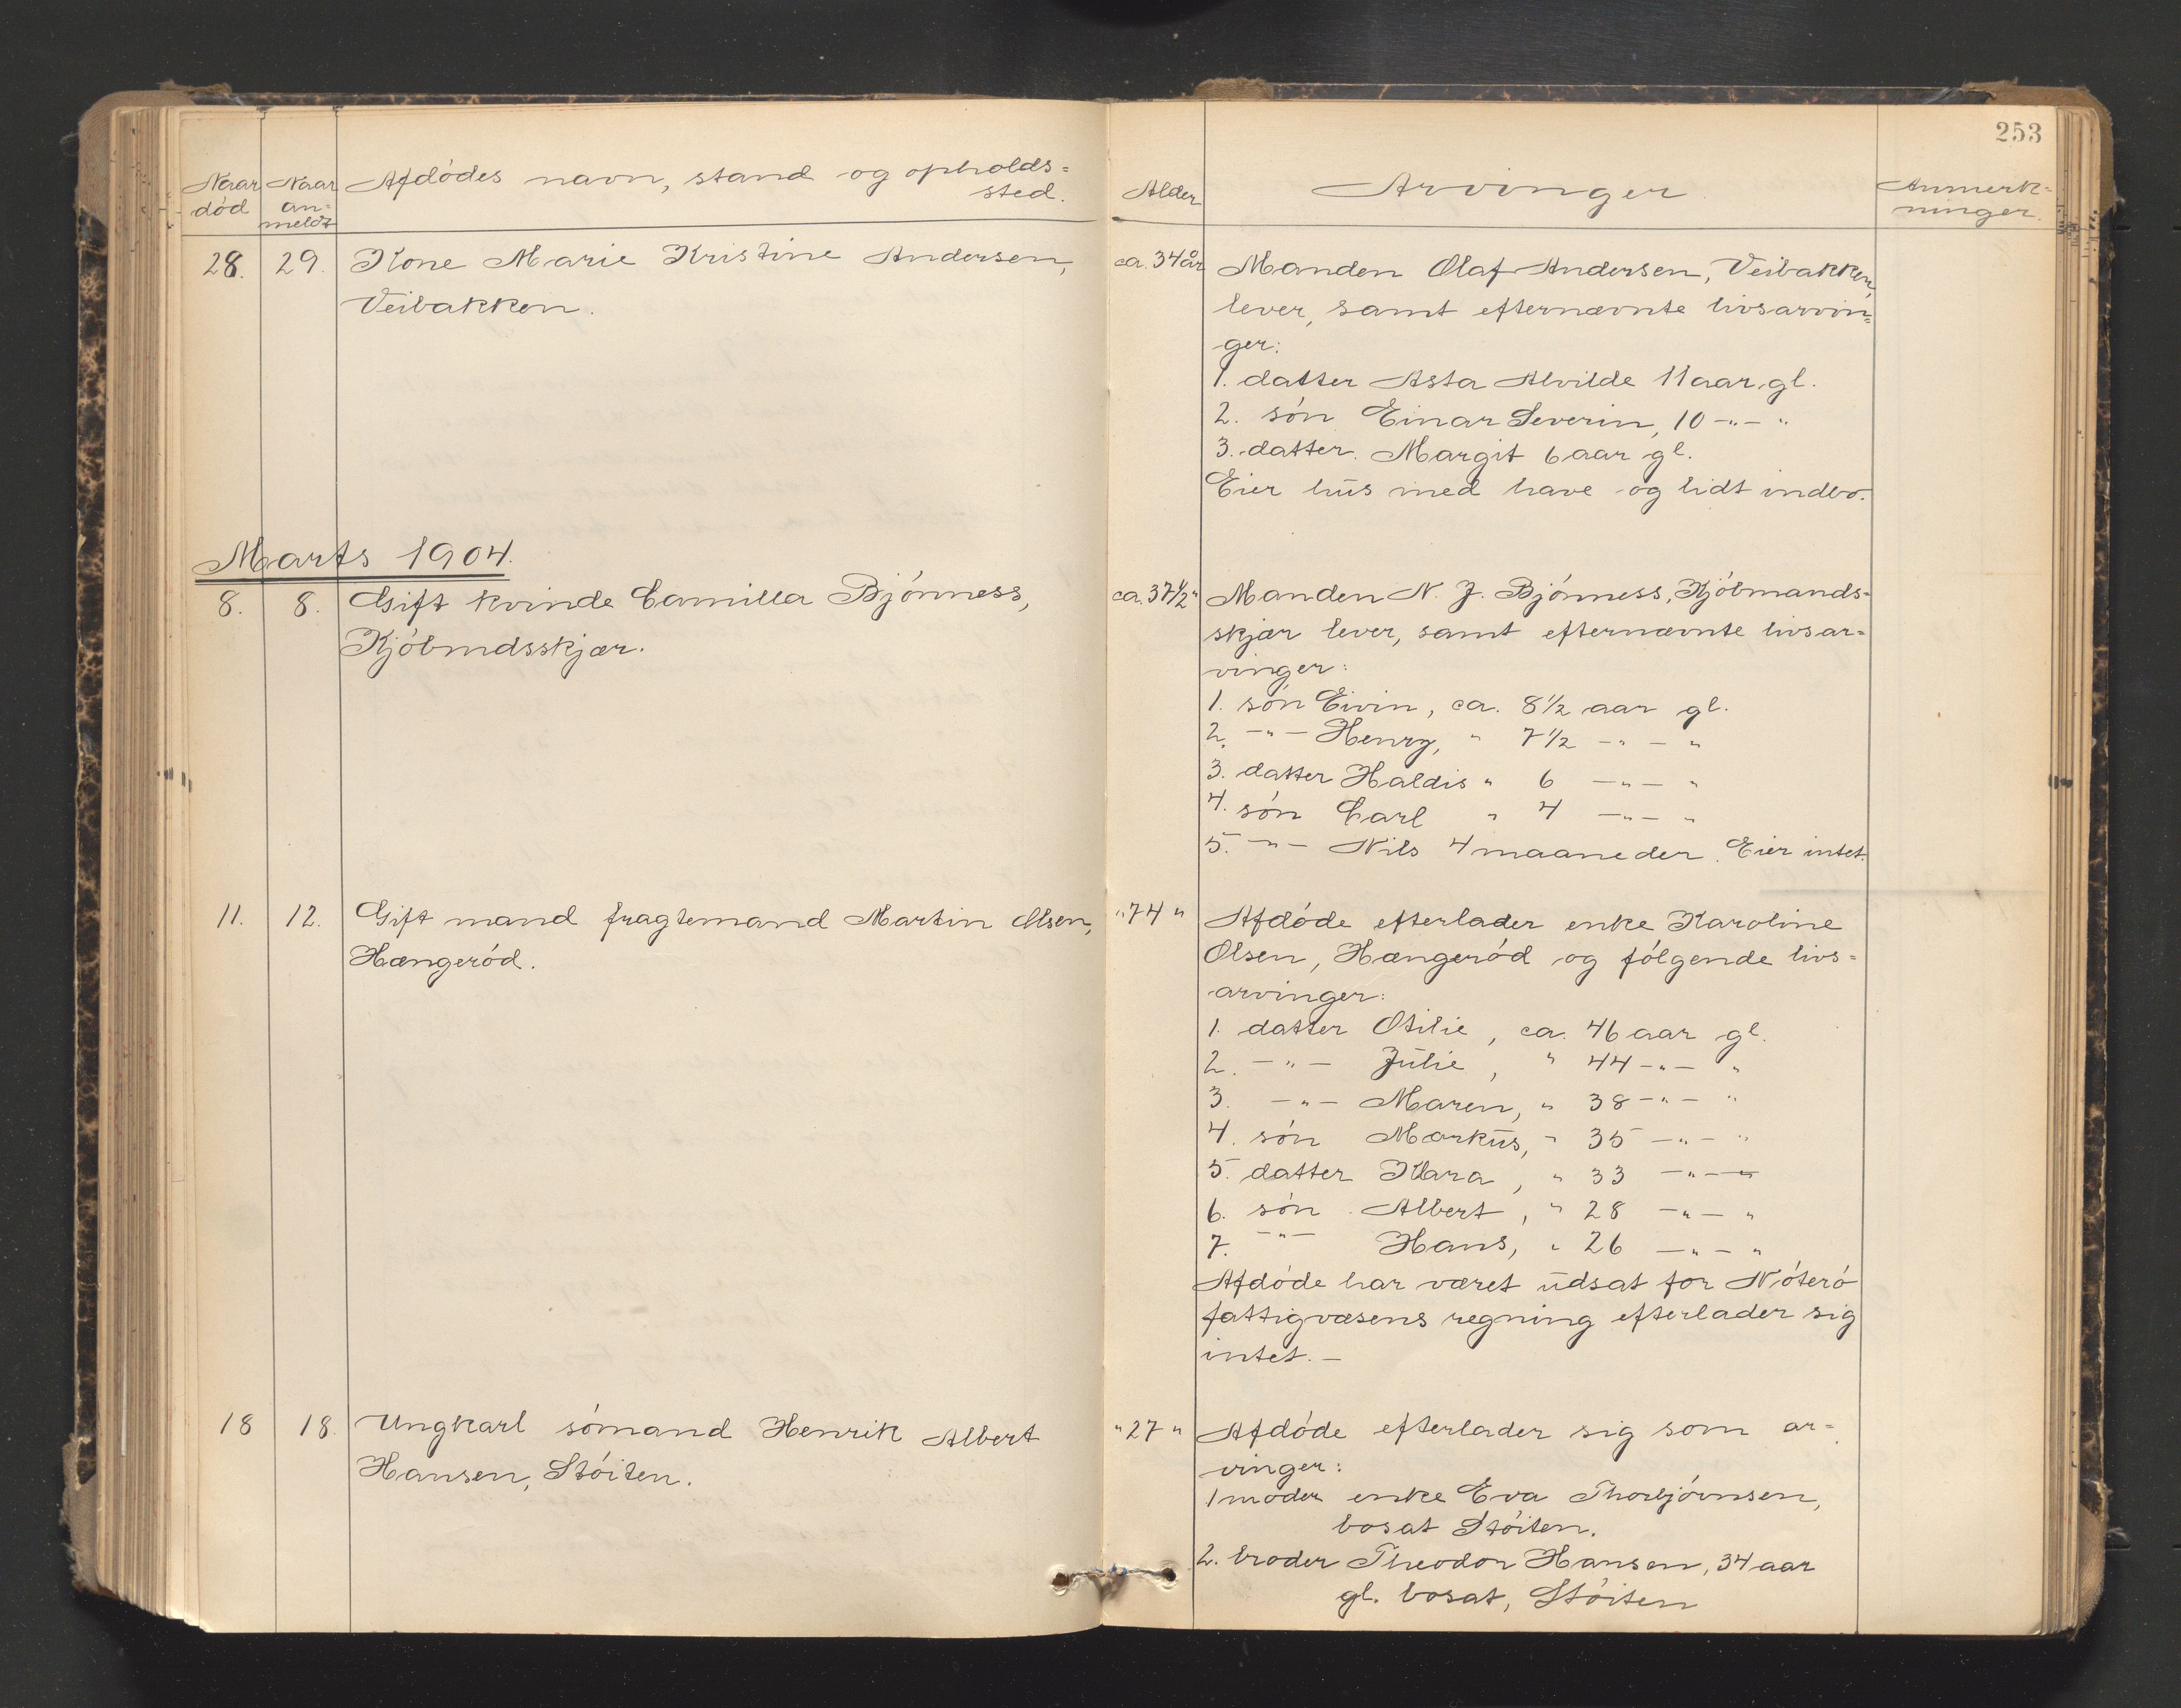 253
Naar død | Naar an=meldt | Afdødes navn, stand og opholds=sted. | Alder | Arvinger | Anmerk=ninger.
28. | 29. | Kone Marie Kristine Andersen,
Veibakken.
ca. 34 år
Manden Olaf Andersen, Veibakken,
lever, samt efternævnte livsarvin=
ger:
1. datter Asta Alvilde 11 aar gl.
2. søn Einar Severin, 10 -"- "
3. datter. Margit 6 aar gl.
Eier hus med have og lidt indbo.
Marts 1904.
8. | 8. | Gift kvinde Camilla Bjønness,
Kjøbmdsskjær.
ca. 37½ "
Manden N. J. Bjønness, Kjøbmands=
skjær lever, samt efternævnte livsar=
vinger:
1. søn Eivin, ca. 8½ aar gl.
2. -"- Henry, " 7½ -"- "
3. datter Haldis " 6 -"- "
4. søn Carl " 4 -"- "
5. -"- Nils 4 maaneder. Eier intet.
11. | 12. | Gift mand fragtemand Martin Olsen,
Hængerød.
" 74 "
Afdøde efterlader enke Karoline
Olsen, Hængerød og følgende livs=
arvinger:
1. datter Otilie, ca. 46 aar gl.
2. -"- Julie, " 44 -"- "
3. -"- Maren, " 38 -"- "
4. søn Markus, " 35 -"- "
5. datter Klara, " 33 -"- "
6. søn Albert, " 28 -"- "
7. -"- Hans, " 26 -"- "
Afdøde har været udsat for Nøterø
fattigvæsens regning efterlader sig
intet. -
18 | 18. | Ungkarl sømand Henrik Albert
Hansen, Støiten.
" 27 "
Afdøde efterlader sig som ar=
vinger:
1 moder enke Eva Thorbjørnsen,
bosat Støiten.
2. broder Theodor Hansen, 34 aar
gl. bosat, Støiten